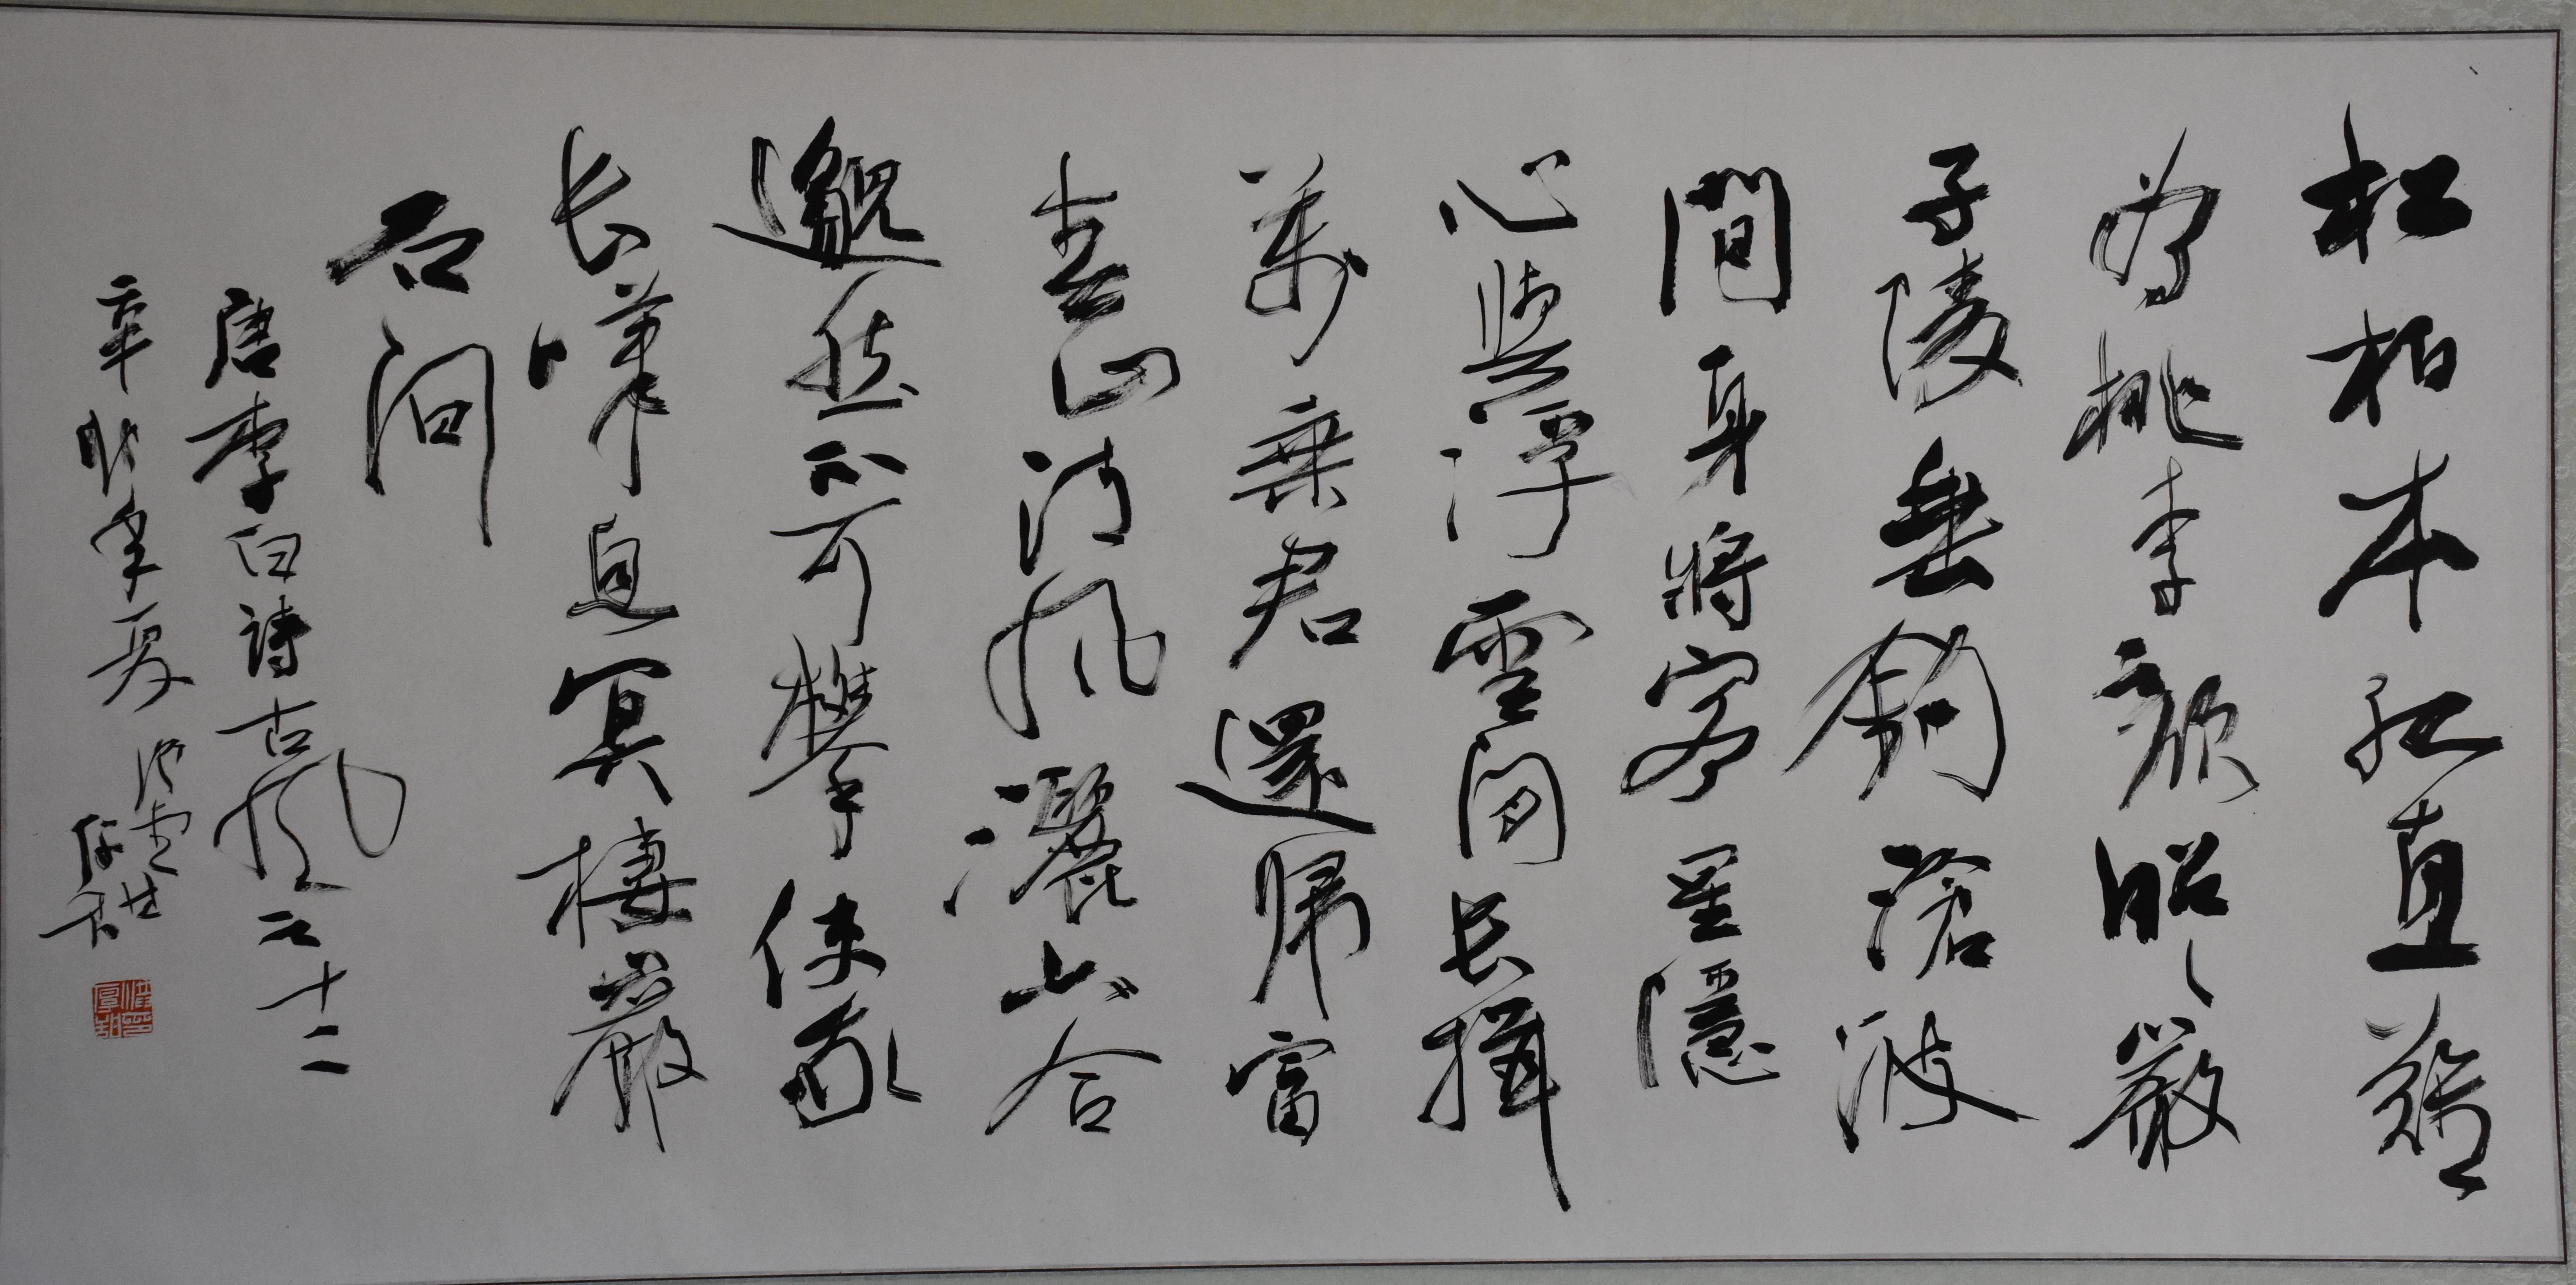 松柏本孤直難
為桃李顏昭〻嚴
子陵垂釣滄波
間身將客星隱
心與浮雲閑長揖
萬乘君還歸富
春山清風灑六合
邈然不可攀使我
长嘆息冥棲巖
石间
唐李白詩古風之十二
辛卯年夏